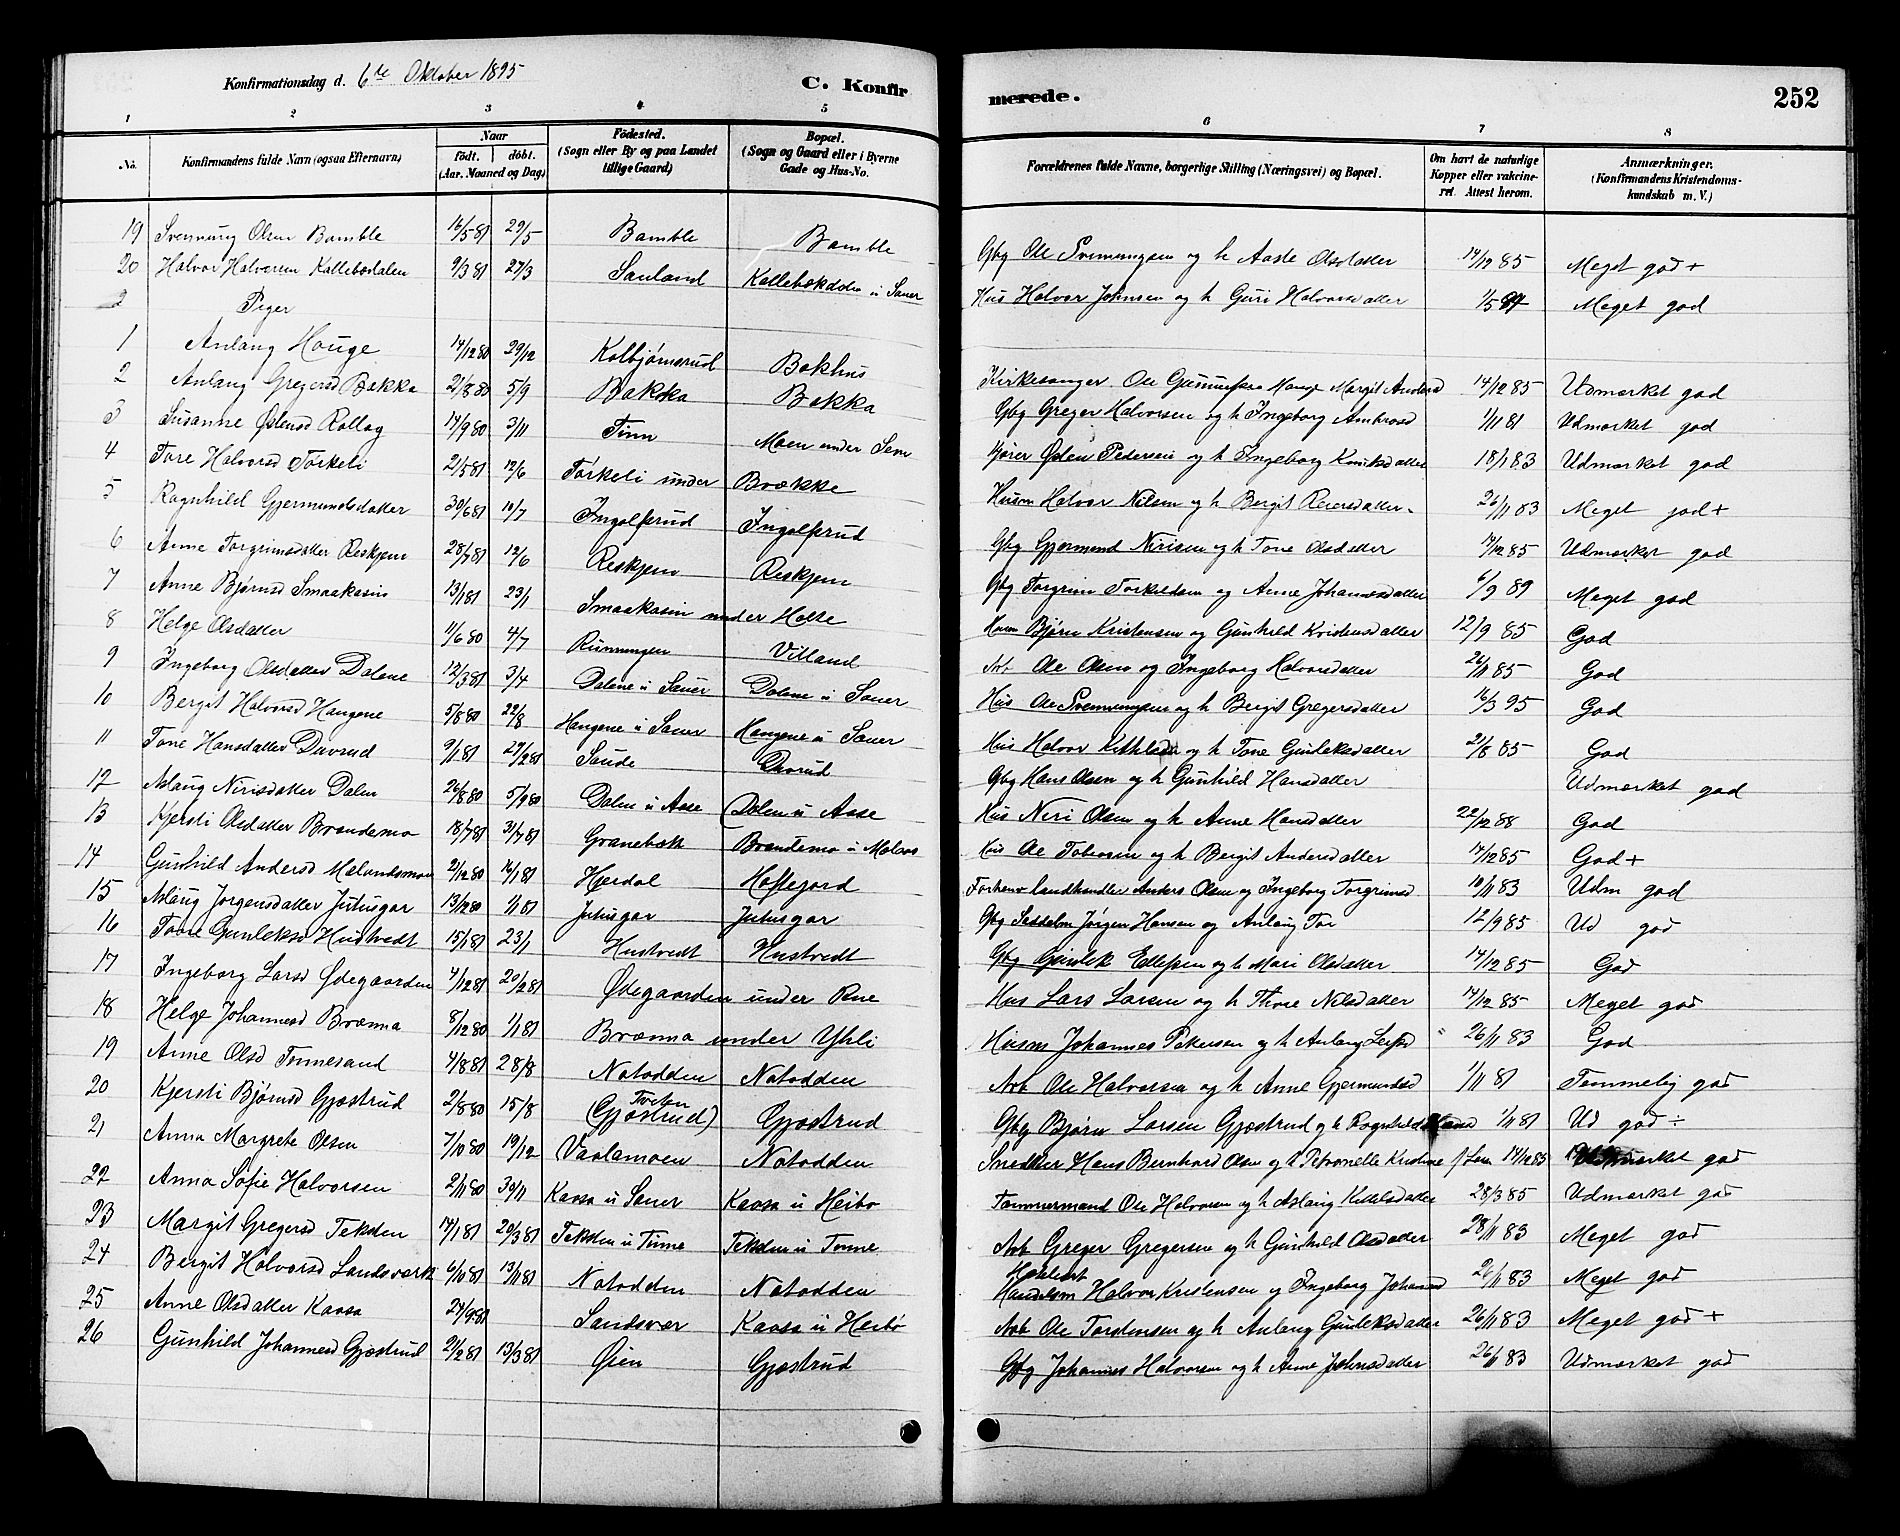 Konfirmationsdag d. 6te Oktober 1895
C. Konfir
merede.
252
1 2 3 4 5 6 7 8
No.
Konfirmandens fulde Navn (ogsaa Efternavn)
Naar
födt. döbt.
(Aar. Maaned og Dag)
Födested.
(Sogn eller By og paa Landet
tillige Gaard)
Bopæl.
(Sogn og Gaard eller i Byerne
Gade og Hus-No.
Forældrenes fulde Navne, borgerlige Stilling (Næringsvei) og Bopæl.
Om havt de naturlige
Kopper eller vakcine-
ret Attest herom.
Anmærkninger.
(Konfirmandens Kristendoms-
kundskab m. V.)
19 Svennung Olsen Bamble 16/5 81 29/5 Bamble Bamble Gbg Ole Svennungsen og h Aaste Olsdatter 14/12 85 Meget god +
20 Halvor Halvorsen Kallebækdalen 9/3 81 27/3 Sauland Kallebækdalen u Sauer Hus Halvor Johnsen og h Guri Halvorsdatter 1/5 84 Meget god
Piger
1 Anlaug Houge 14/12 80 29/12 Kolbjørnsrud Bakhus Kirkesanger Ole Gunnufsen Houge Margit Andersd 14/12 85 Udmærket god
2 Anlaug Gregersd Bakka 21/8 80 5/9 Bakka Bakka Gbg Greger Halvorsen og h Ingeborg Ambrosd 1/11 81 Udmærket god
3 Susanne Østensd Rollag 14/9 80 3/11 Tinn Moen under Sem Kjører Østen Pedersen og h Ingeborg Knutsdatter 18/1 83 Udmærket god
4 Tore Halvorsd Torkeli 21/5 81 12/6 Torkeli under Brække Husm Halvor Nilsen og h Bergit Reiersdatter 26/11 83 Meget god +
5 Ragnhild Gjermundsdatter 30/6 81 10/7 Ingolfsrud Ingolfsrud Gbg Gjermund Nirisen og h Tone Olsdatter 14/12 85 Udmærket god
6 Anne Torgrimsdatter Reskjem 28/7 81 12/6 Reskjem Reskjem Gbg Torgrim Torkildsen og Anne Johannesdatter 6/9 89 Meget god
7 Anne Bjørnsd Smaakasin 13/1 81 23/1 Smaakasin under Holte Husm Bjørn Kristensen og Gunhild Kristensdatter 12/9 85 God
8 Helge Olsdatter 11/6 80 4/7 Runningen Villand Arb Ole Olsen og Ingeborg Halvorsdatter 26/11 85 God
9 Ingeborg Olsdatter Dalene 12/3 81 3/4 Dalene u Sauer Dalene u Sauer Hus Ole Svennungsen og h Bergit Gregersdatter 16/3 95 God
10 Bergit Halvorsd Haugene 5/8 80 22/8 Haugene u Sauer Haugene u Sauer Hus Halvor Kittilsen og h Tone Gunleksdatter 21/8 85 God
11 Tone Hansdatter Duvrud 9/1 81 27/2 81 Saude Duvrud Gbg Hans Olsen og h Gunhild Hansdatter Udmærket god
12 Aslaug Nirisdatter Dalen 26/8 80 5/9 80 Dalen u Aase Dalen u Aase Hus Niri Olsen og h Anne Hansdatter 22/12 88 God
13 Kjersti Olsdatter Brændemo 18/7 81 31/7 81 Granebæk Brændemo u Melaas Hus Ole Tobiasen og h Bergit Andersdatter 14/12 85 God +
14 Gunhild Andersd Melandsmoe 21/12 80 16/1 81 Hjerdal Haftejord Forhenv landhandler Anders Olsen og Ingeborg Torgrimsd 10/11 83 Udm god
15 Aslaug Jørgensdatter Jutusgar 13/12 80 1/1 81 Jutusgar Jutusgar Gbg Saddelm Jørgen Hansen og Anlaug Tor 12/9 85 Ud god
16 Tone Gunleksd Hustvedt 15/1 81 23/1 Hustvedt Hustvedt Gbg Gunlek Ellefsen og h Mari Olsdatter 14/12 85 God
17 Ingeborg Larsd Ødegaarden 4/12 81 20/2 81 Ødegaarden under Rue Hus Lars Larsen og h Thore Nilsdatter 14/12 85 Meget god
18 Helge Johannesd Brænna 8/12 80 1/1 81 Brænna under Yhli Husm Johannes Pettersen og h Anlaug Leifsd 26/11 83 God
19 Anne Olsd Tinnesand 4/8 81 28/8 Notodden Notodden Arb Ole Halvorsen og h Anne Gjermundsd 1/11 81 Temmelig god
20 Kjersti Bjørnsd Gjøstrud 2/8 80 15/8 Tveten (Gjøstrud) Gjøstrud Gbg Bjørn Larsen Gjøstrud og h Ragnhild 1/11 81 Ud god ÷
21 Anna Margrete Olsen 7/10 80 19/12 Vaalamoen Notodden Snedker Hans Bernhard Olsen og h Petronelle Kristine f Lars 14/12 85 Udmærket god
22 Anna Sofie Halvorsen 2/11 80 30/11 Kaasa u Sauer Kaasa u Heibø Tømmermand Ole Halvorsen og h Aslaug Kittelsdatter 28/3 85 Udmærket god
23 Margit Gregersd Teksten 14/1 81 20/3 81 Teksten u Tinne Teksten u Tinne Arb Greger Gregersen og h Gunhild Olsdatter 28/11 83 Meget god
24 Bergit Halvorsd Landsværk 6/10 81 13/11 81 Notodden Notodden Handelsm Halvor Kristensen og Ingeborg Johannesd 26/11 83 Meget god
25 Anne Olsdatter Kaasa 27/9 81 Sandsvær Kaasa u Heibø Arb Ole Torstensen og h Anlaug Gunleksdatter 26/11 83 Meget god +
26 Gunhild Johannesd Gjøstrud 21/2 81 13/3 81 Øien Gjøstrud Gbg Johannes Halvorsen og h Anne Johnsdatter 26/11 83 Udmærket god